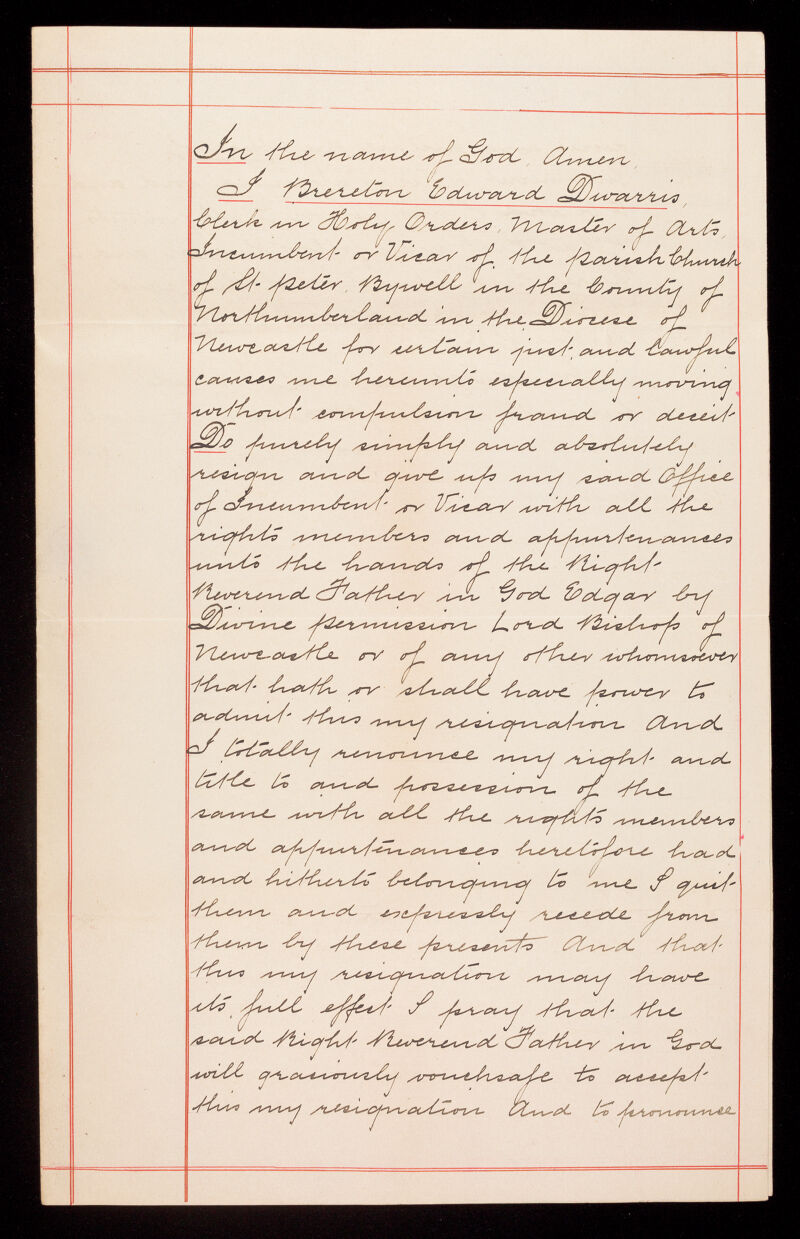 In the name of God. Amen.
I Brereton Edward Dwarris,
Clerk in Holy Orders, Master of Arts,
Incumbent or Vicar of the parish Church
of St. Peter, Bywell in the County of
Northumberland in the Diocese of
Newcastle for certain just, and lawful
causes me hereunto especially moving
without compulsion fraud or deceit
Do purely simply and absolutely
resign and give up my said Office
of Incumbent or Vicar with all the
rights members and appurtenances
unto the hands of the Right
Reverend Father in God Edgar by
Divine permission Lord Bishop of
Newcastle or of any other whomsoever
that hath or shall have power to
admit this my resignation And
I totally renounce my right and
title to and possession of the
same with all the rights members
and appurtenances heretofore had
and hitherto belonging to me I quit
them and expressly recede from
them by these presents And that
this my resignation may have
its full effect I pray that the
said Right Reverend Father in God
will graciously vouchsafe to accept
this my resignation And to pronounce